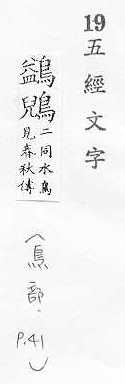 19五經文字
鷁鶂
二同水鳥
見春秋傳
(鳥部.
P.41)